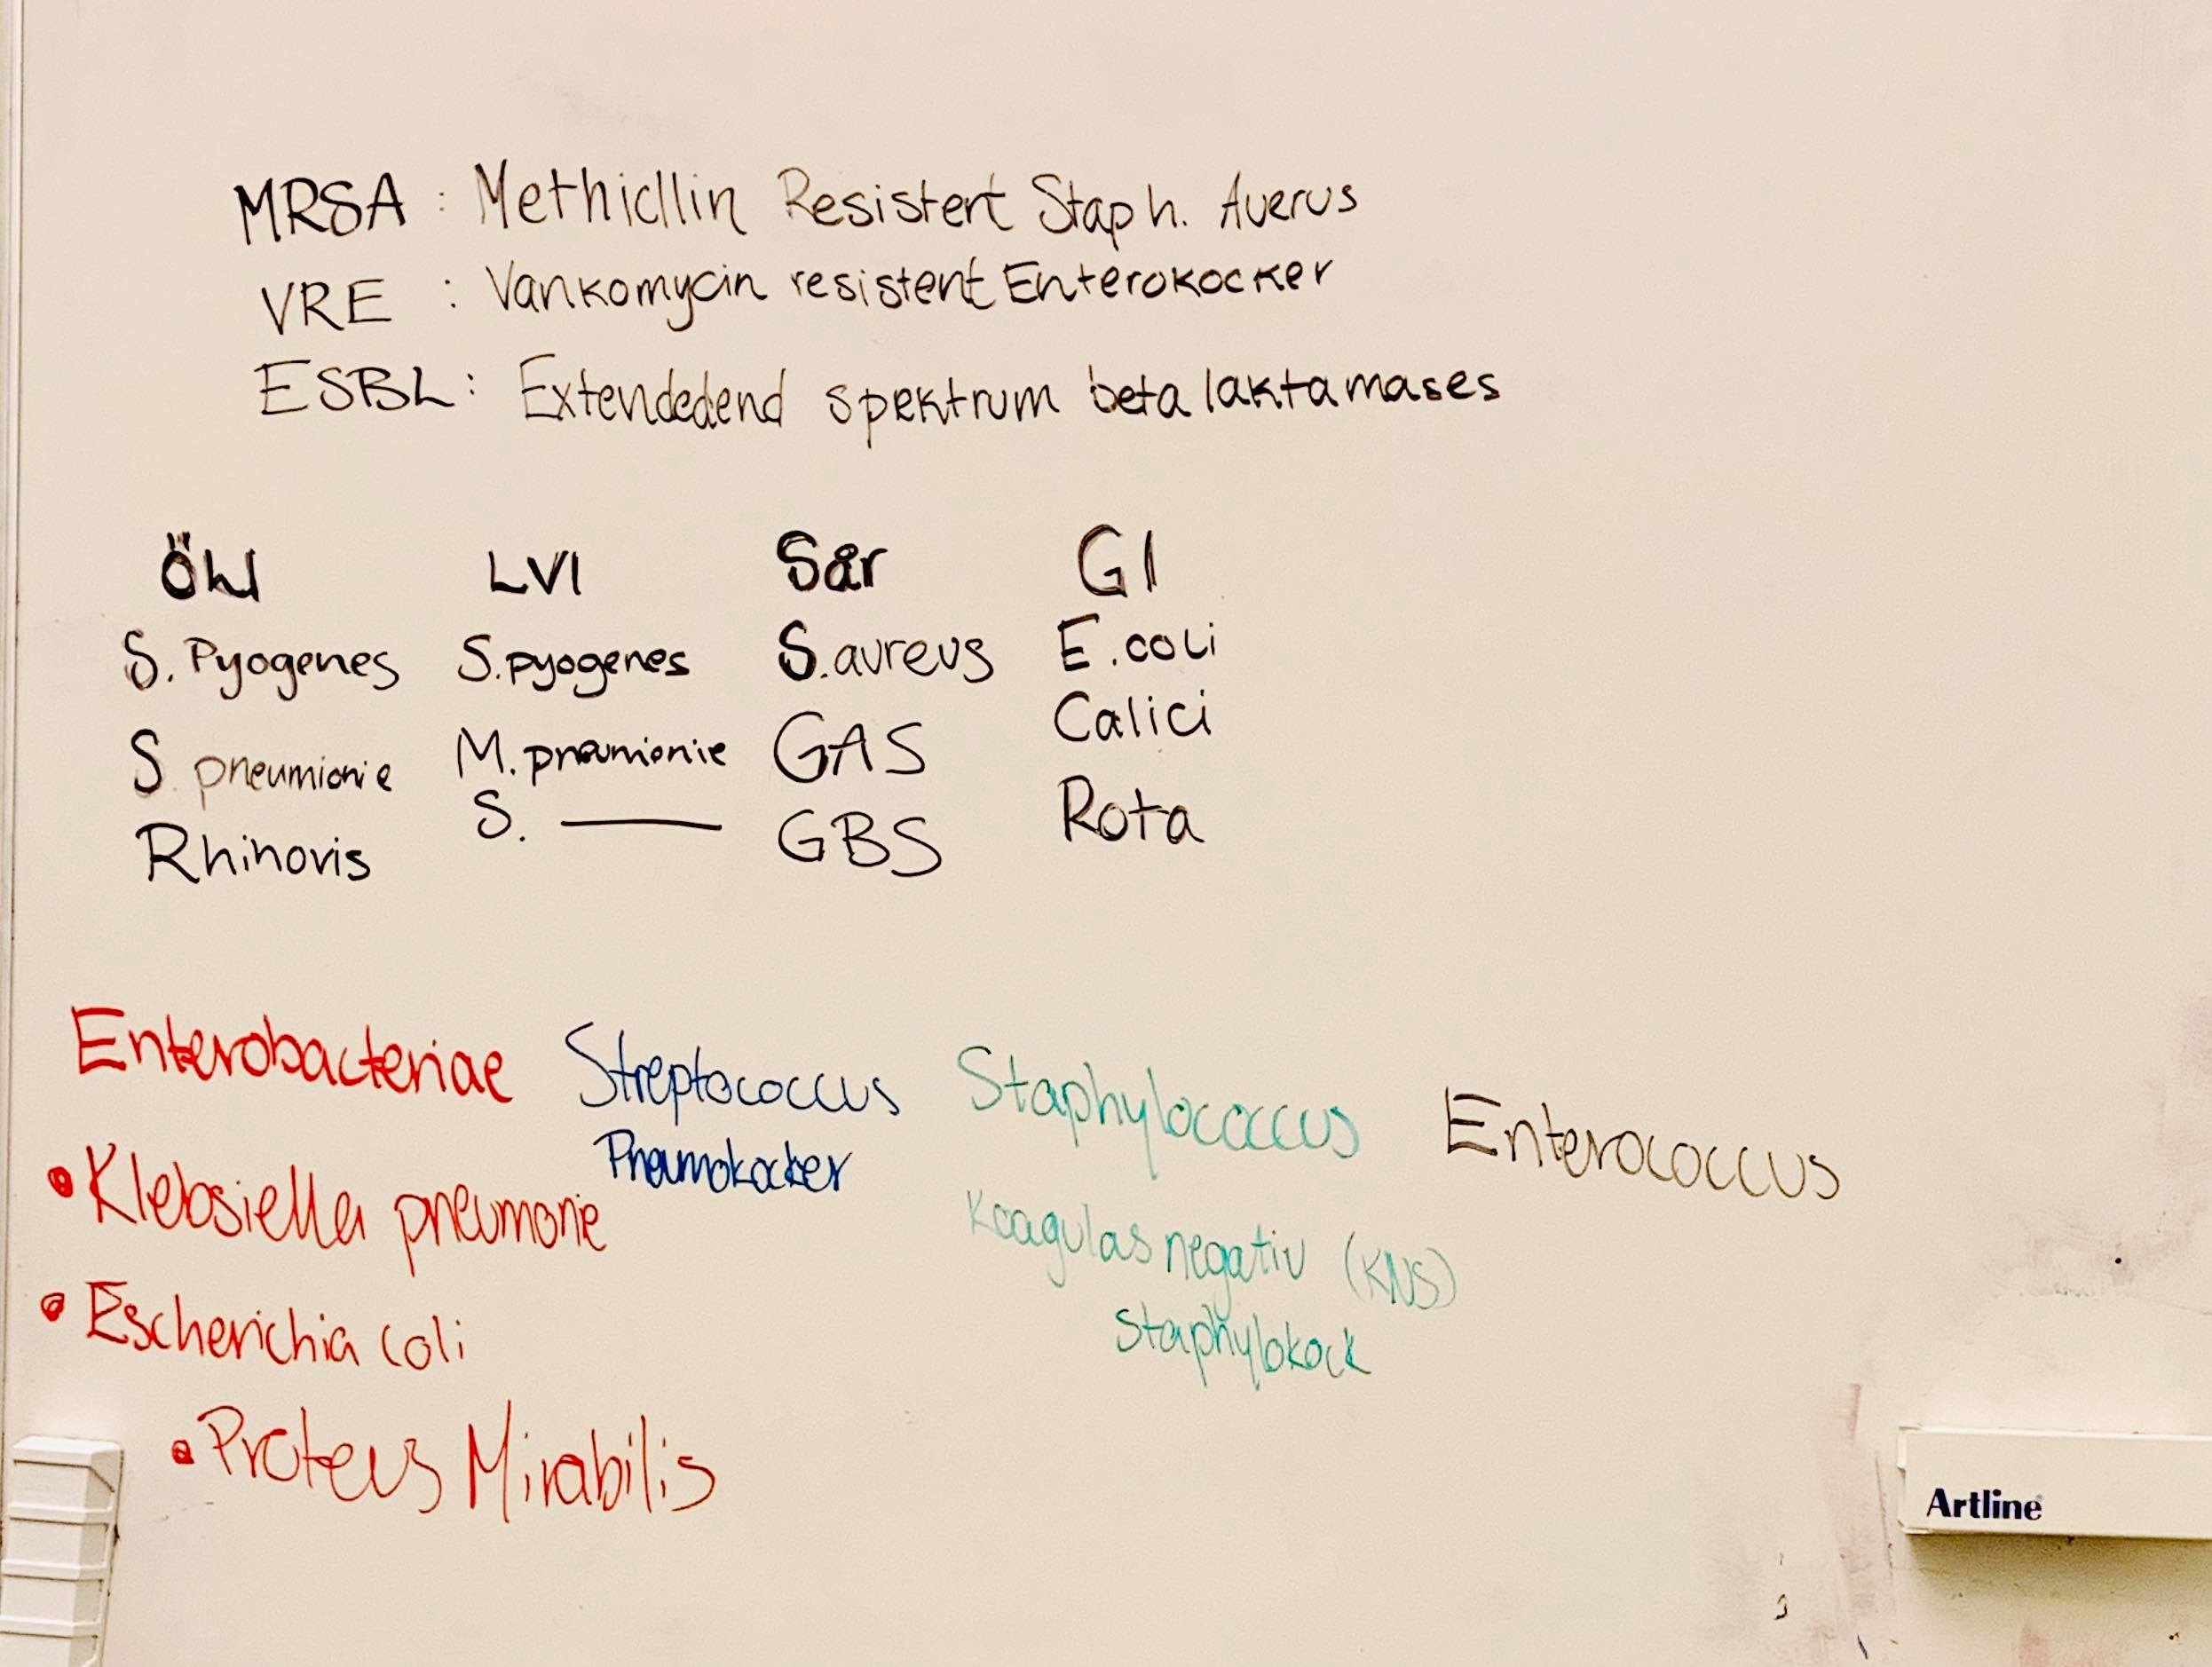 MRSA : Methicllin Resistent Staph. Auerus
VRE : Vankomycin resistent Enterokocker
ESBL: Extendedend spektrum beta laktamases
ÖLI LVI Sår GI
S. Pyogenes S. pyogenes S. aureus E. coli
S. pneumionie M. pneumionie GAS Calici
Rhinoris S. —— GBS Rota
Enterobacteriae Streptococcus Staphylococcus Enterococcus
Pneumokocker
• Klebsiella pneumonie
Koagulas negativ (KNS)
staphylokock
• Escherichia coli
• Proteus Mirabilis
Artline